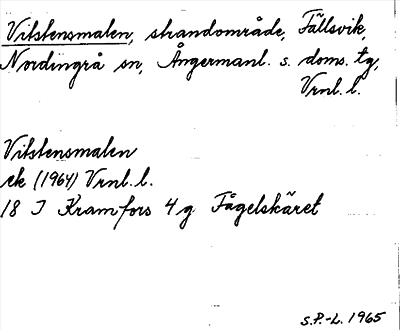 Vitstensmalen, strandområde, Fällsvik,
Nordingrå sn, Ångermanl. s. doms. tg,
Vrnl. l.
Vitstensmalen
ek (1964) Vrnl. l.
18 I Kramfors 4 g Fågelskäret
S.P.-L. 1965